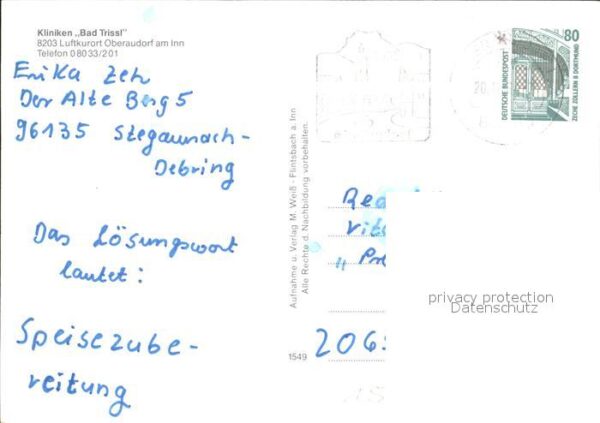 Kliniken „Bad Trissl"
8203 Luftkurort Oberaudorf am Inn
Telefon 08033/201
Erika Zeh
Der Alte Berg 5
96135 Stegaurach-
Debring
Das Lösungswort
lautet:
Speisezube-
reitung
Aufnahme u. Verlag M. Weiß - Flintsbach a. Inn
Alle Rechte d. Nachbildung vorbehalten.
1549
80
DEUTSCHE BUNDESPOST
ZECHE ZOLLERN II DORTMUND
20.
Red
vita
„ Pr
privacy protection
Datenschutz
206